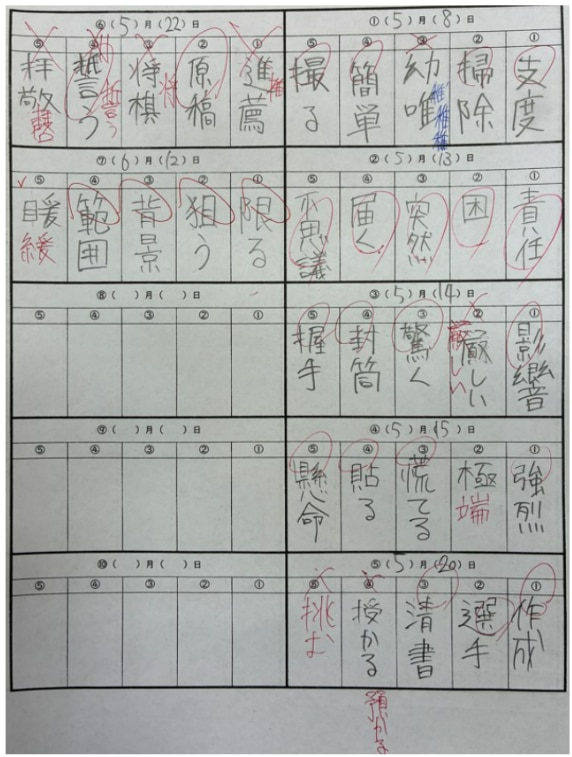 ①(5)月(8)日
① 支度
② 掃除
③ 幼唯
稚稚稚
④ 簡単
⑤ 撮る
②(5)月(13)日
① 責任
② 困
③ 突然
④ 届く
⑤ 不思議
③(5)月(14)日
① 影響
② 厳しい
厳しい
③ 驚く
④ 封筒
⑤ 握手
④(5)月(15)日
① 強烈
② 極端
③ 慌てる
④ 貼る
⑤ 懸命
⑤(5)月(20)日
① 作成
② 選手
③ 清書
④ 授かる
預かる
⑤ 挑む
⑥(5)月(22)日
① 進薦
推
② 原稿
③ 将棋
将
④ 誓う
誓う
⑤ 拝敬
⑦(6)月(12)日
① 限る
② 狙う
③ 背景
④ 範囲
⑤ 暖
緩
⑧( )月( )日
① ② ③ ④ ⑤
⑨( )月( )日
① ② ③ ④ ⑤
⑩( )月( )日
① ② ③ ④ ⑤